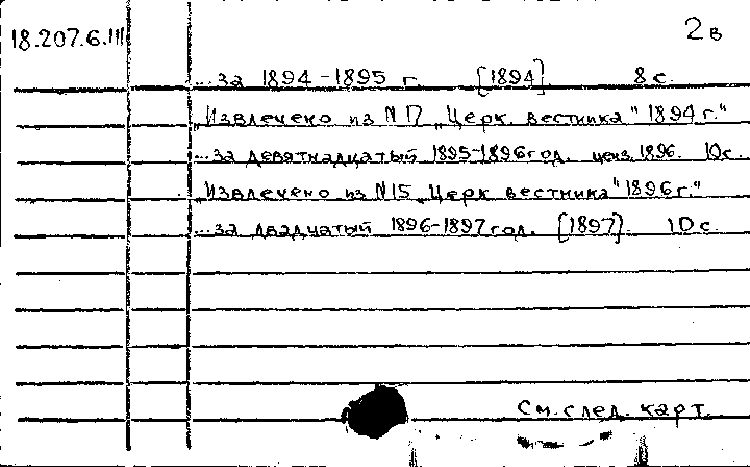 18.207.6.111
2в
...за 1894-1895 г. [1894]. 8 с.
„Извлечено из N 17 „Церк. вестника" 1894 г."
...за девятнадцатый 1895-1896 год. ценз. 1896. 10 с.
„Извлечено из N 15 „Церк вестника" 1896 г."
...за двадцатый 1896-1897 год. [1897]. 10 с.
См. след. карт.